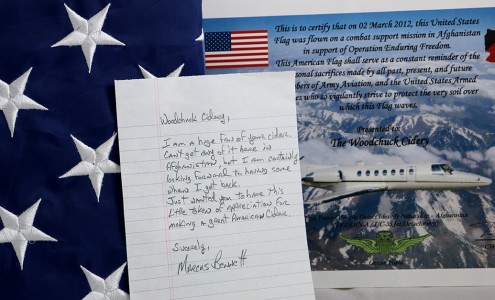 This is to certify that on 02 March 2012, this United States
Flag was flown on a combat support mission in Afghanistan
in support of Operation Enduring Freedom.
This American Flag shall serve as a constant reminder of the
sacrifices made by all past, present, and future
of Army Aviation, and the United States Armed
who so vigilantly strive to protect the very soil over
which this Flag waves.
Presented to:
The Woodchuck Cidery
Woodchuck Cidery,
I am a huge fan of your cider.
Can't get any of it here in
Afghanistan, but I am certainly
looking forward to having some
when I get back.
Just wanted you to have this
little token of appreciation for
making a great American Cider.
Sincerely,
Marcus Bennett